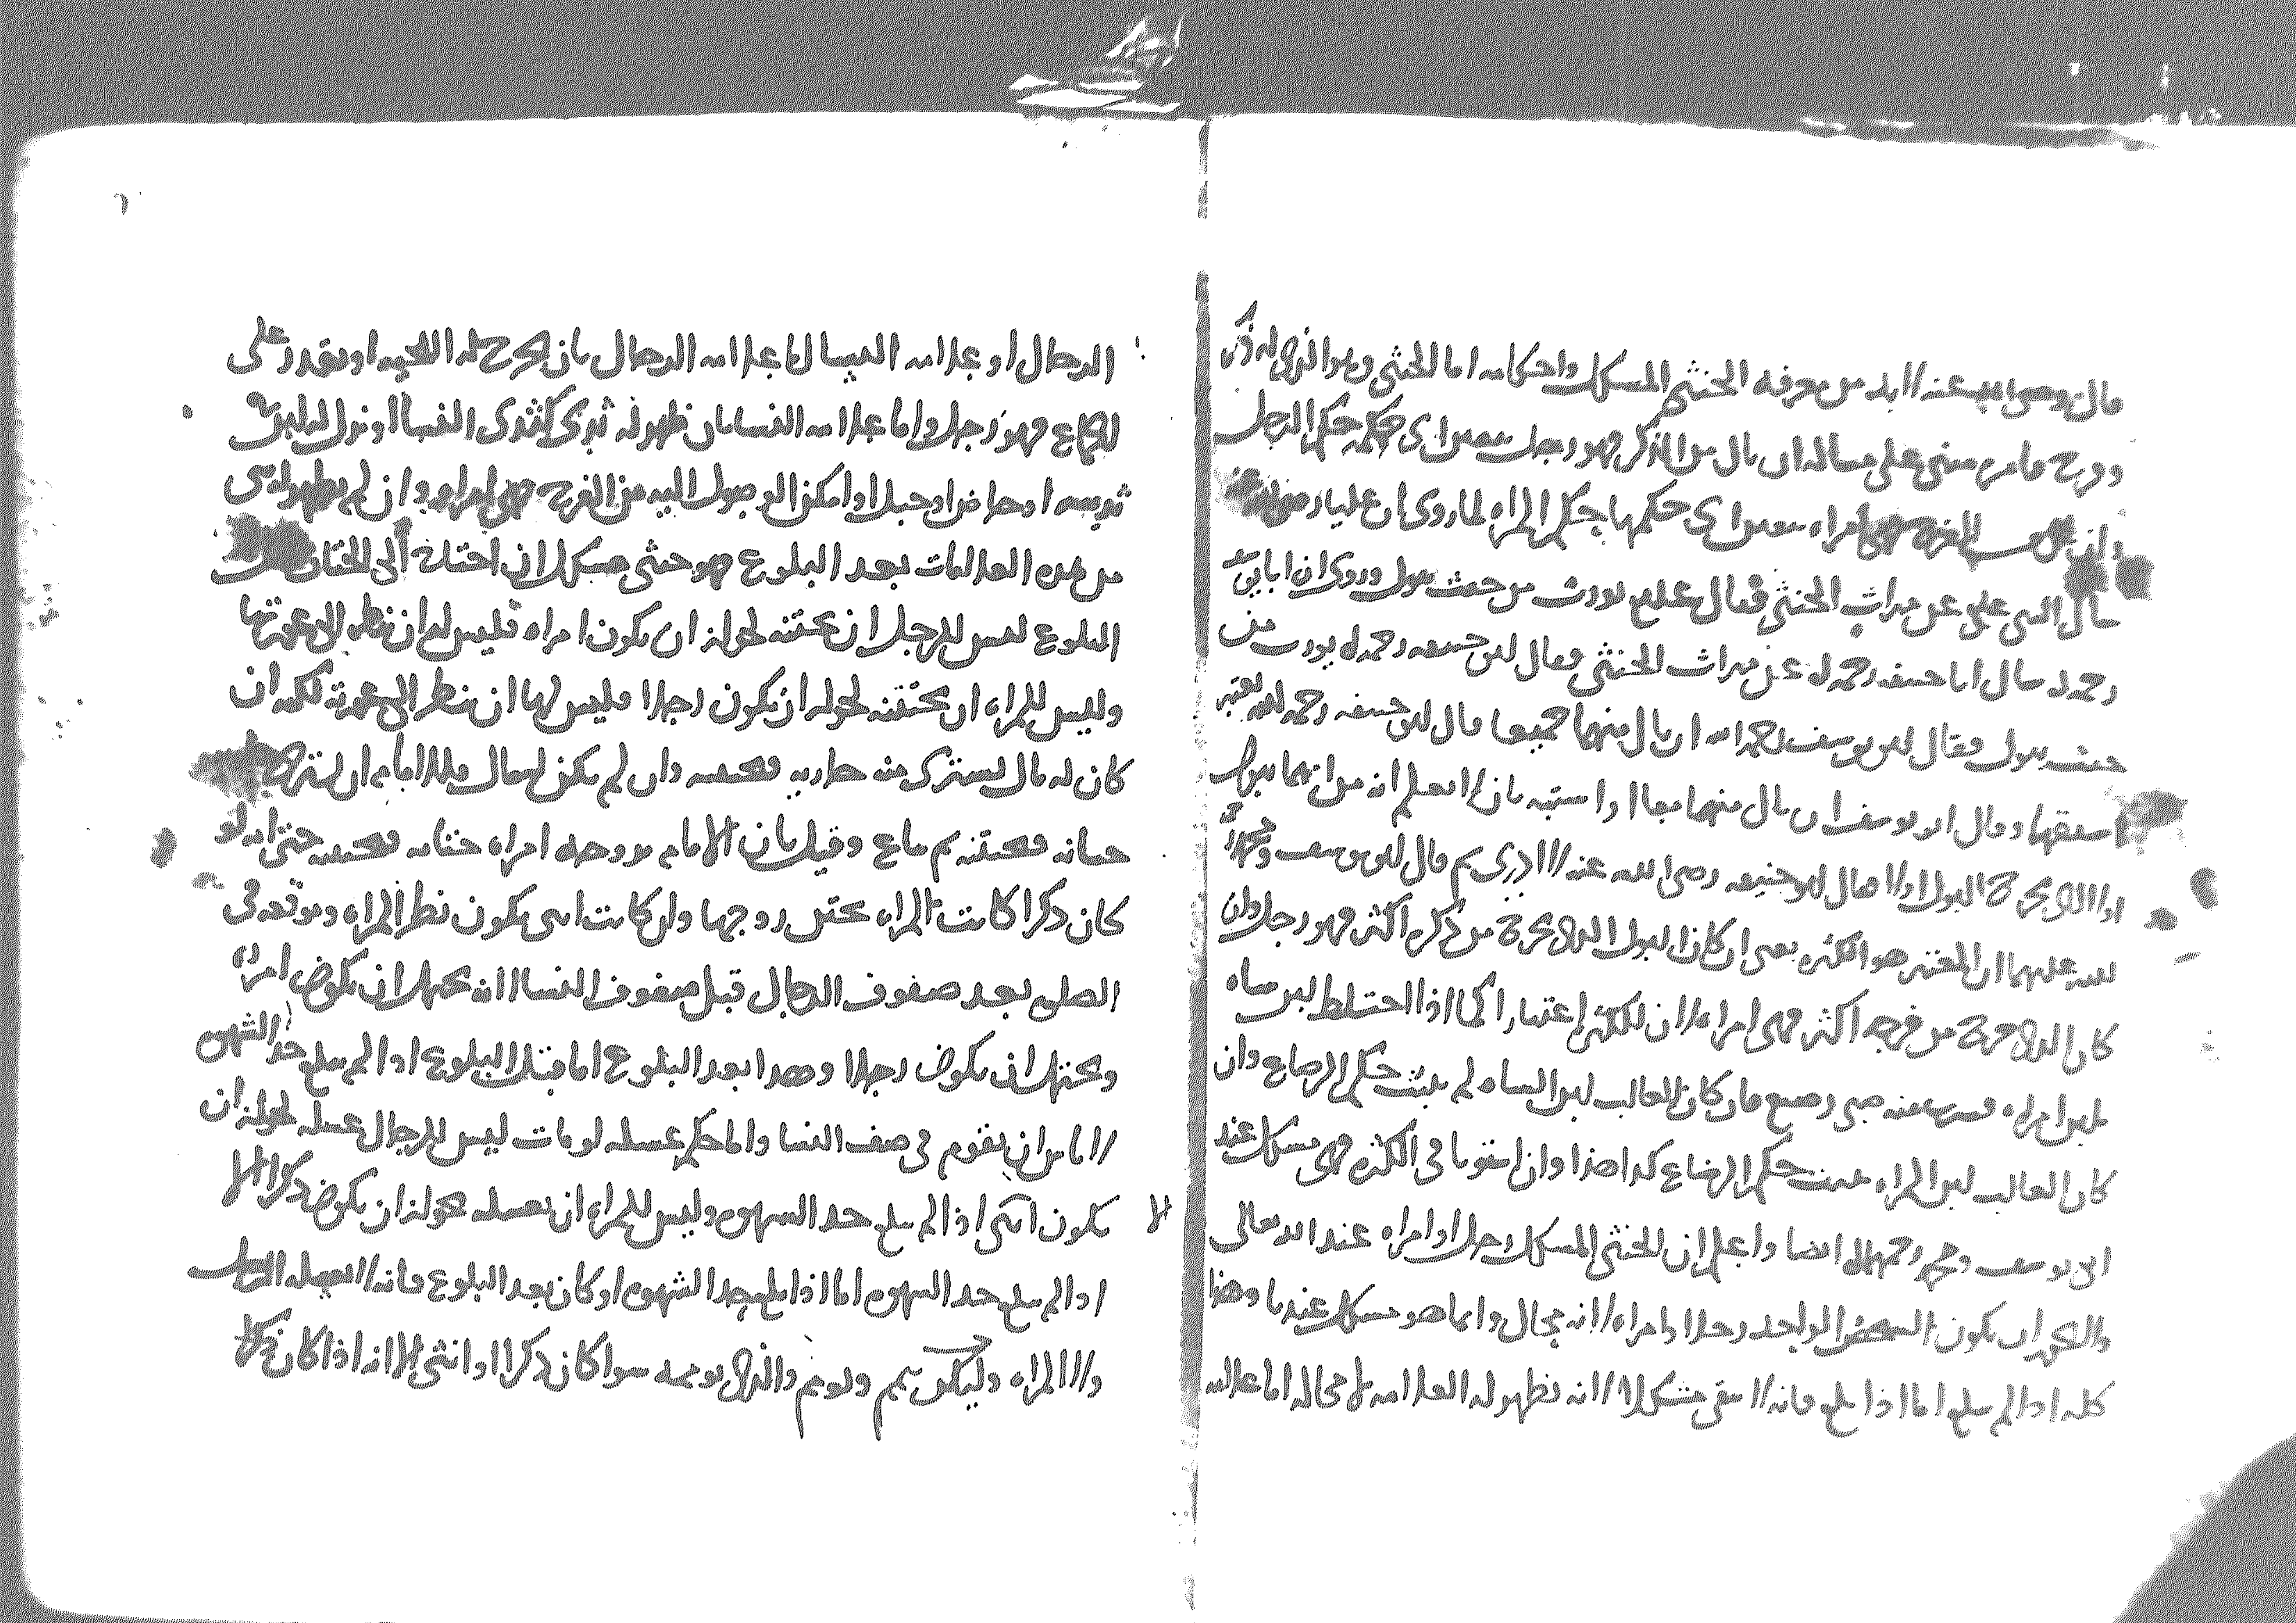 قال رضي الله عنه لابد من معرفة الخنثى المشكل واحكامه اما الخنثى وهو الذي له ذكر
وفرج فامره مبني على مباله ان بال من الذكر فهو رجل معنى اي حكمه حكم الرجل
وان بال من الفرج فهي امراه معنى اي حكمها حكم المراه لما روي ان عليا رضي الله عنه
سال النبي علي عن ميراث الخنثى فقال علم يورث من حيث يبول وروي ان ابا يوسف
رحمه الله سال ابا حنيفه رحمه الله عن ميراث الخنثى فقال ابو حنيفه رحمه الله يورث من
حيث يبول فقال ابو يوسف رحمه الله ان بال منهما جميعا قال ابو حنيفه رحمه الله يعتبر
اسبقهما وقال ابو يوسف ان بال منهما معا او اشتبه بان لا يعلم انه من ايهما يبول
اولا الذي يخرج البول اولا قال ابو حنيفه رضي الله عنه لا ادري ثم قال ابو يوسف ومحمد
الله عليهما ان المعتبر هو الكثره يعني ان كان البول الذي يخرج من ذكره اكثر فهو رجل وان
كان الذي يخرج من فرجه اكثر فهي امراه لان للكثره اعتبارا كما اذا اختلط لبن شاه
بلبن امراه فشربه منه صبي رضيع فان كان الغالب لبن الشاه لم يثبت حكم الرضاع وان
كان الغالب لبن المراه يثبت حكم الرضاع كذا هذا وان استويا في الكثره فهي مشكل عند
ابي يوسف ومحمد رحمهما الله ايضا واعلم ان الخنثى المشكل رجل او امراه عند الله تعالى
ولا يجوز ان يكون الشخص الواحد رجلا وامراه لانه محال وانما هو مشكل عندنا وهذا
كله اذا لم يبلغ اما اذا بلغ فانه لا يبقى مشكلا لانه تظهر له العلامه لا محاله اما علامه
الرجال او علامه النسا اما علامه الرجال بان يخرج له اللحيه او يقدر على
الجماع فهو رجل واما علامه النسا بان ظهر له ثدي كثدي النسا او نزل له لبن في
ثدييه او حاض او حبل او امكن الوصول اليه من الفرج فهي امراه وان لم يظهر له شي
من هذه العلامات بعد البلوغ فهو خنثى مشكل ان احتاج الى الختان
البلوغ ليس للرجل ان يختنه لجواز ان يكون امراه فليس له ان ينظر الى عورتها
وليس للمراه ان تختنه لجواز ان يكون رجلا فليس لها ان تنظر الى عورته لكنه ان
كان له مال يشتري منه جاريه فتختنه وان لم يكن له مال فللامام ان يشتري
ختانه فتختنه ثم يباع وقيل بان الامام يزوجه امراه ختانه فتختنه حتى انه لو
كان ذكرا كانت المراه تختن زوجها وان كانت انثى يكون نظر المراه وموقعه في
الصلوه بعد صفوف الرجال قبل صفوف النسا لانه يحتمل ان يكون امراه
ويحتمل ان يكون رجلا وهذا بعد البلوغ اما قبل البلوغ اذا لم يبلغ حد الشهوه
لا باس ان يقوم في صف النسا واما حكم غسله لو مات ليس للرجال غسله لجواز ان
يكون انثى اذا لم يبلغ حد الشهوه وليس للمراه ان تغسله لجواز ان يكون ذكرا الا
اذا لم يبلغ حد الشهوه اما اذا بلغ حد الشهوه او كان بعد البلوغ فانه لا يغسله الرجل
ولا المراه ولكن ييمم ويومم والذي يوممه سوا كان ذكرا او انثى الا انه اذا كان ذكرا